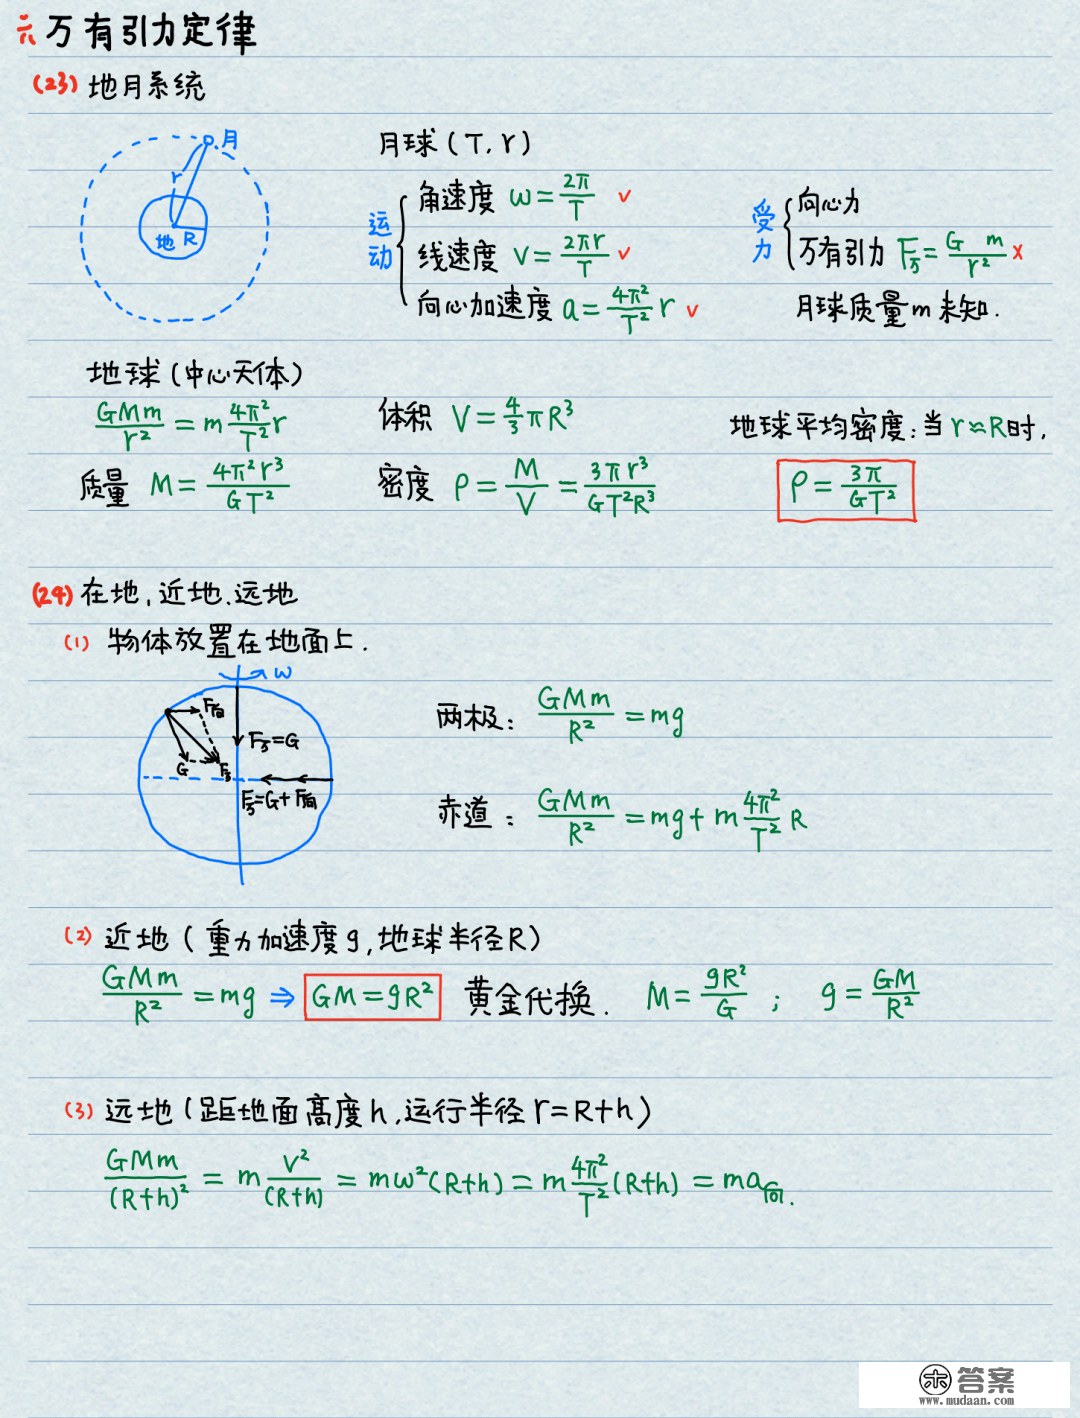 六 万有引力定律
(23) 地月系统
月
r
地 R
月球 (T, r)
运动
角速度 ω = 2π/T ✓
线速度 v = 2πr/T ✓
向心加速度 a = 4π²/T² r ✓
受力
向心力
万有引力 F万 = G m/r² ×
月球质量m未知.
地球 (中心天体)
GMm/r² = m 4π²/T² r
质量 M = 4π²r³/GT²
体积 V = 4/3 πR³
密度 ρ = M/V = 3πr³/GT²R³
地球平均密度: 当 r≈R时,
ρ = 3π/GT²
(24) 在地, 近地. 远地
(1) 物体放置在地面上.
ω
F向
F万=G
G F万
F万=G+F向
两极: GMm/R² = mg
赤道: GMm/R² = mg + m 4π²/T² R
(2) 近地 (重力加速度g, 地球半径R)
GMm/R² = mg ⇒ GM = gR² 黄金代换. M = gR²/G ; g = GM/R²
(3) 远地 (距地面高度h, 运行半径 r=R+h)
GMm/(R+h)² = m v²/(R+h) = mω²(R+h) = m 4π²/T² (R+h) = ma向.
答案
www.mudaan.com